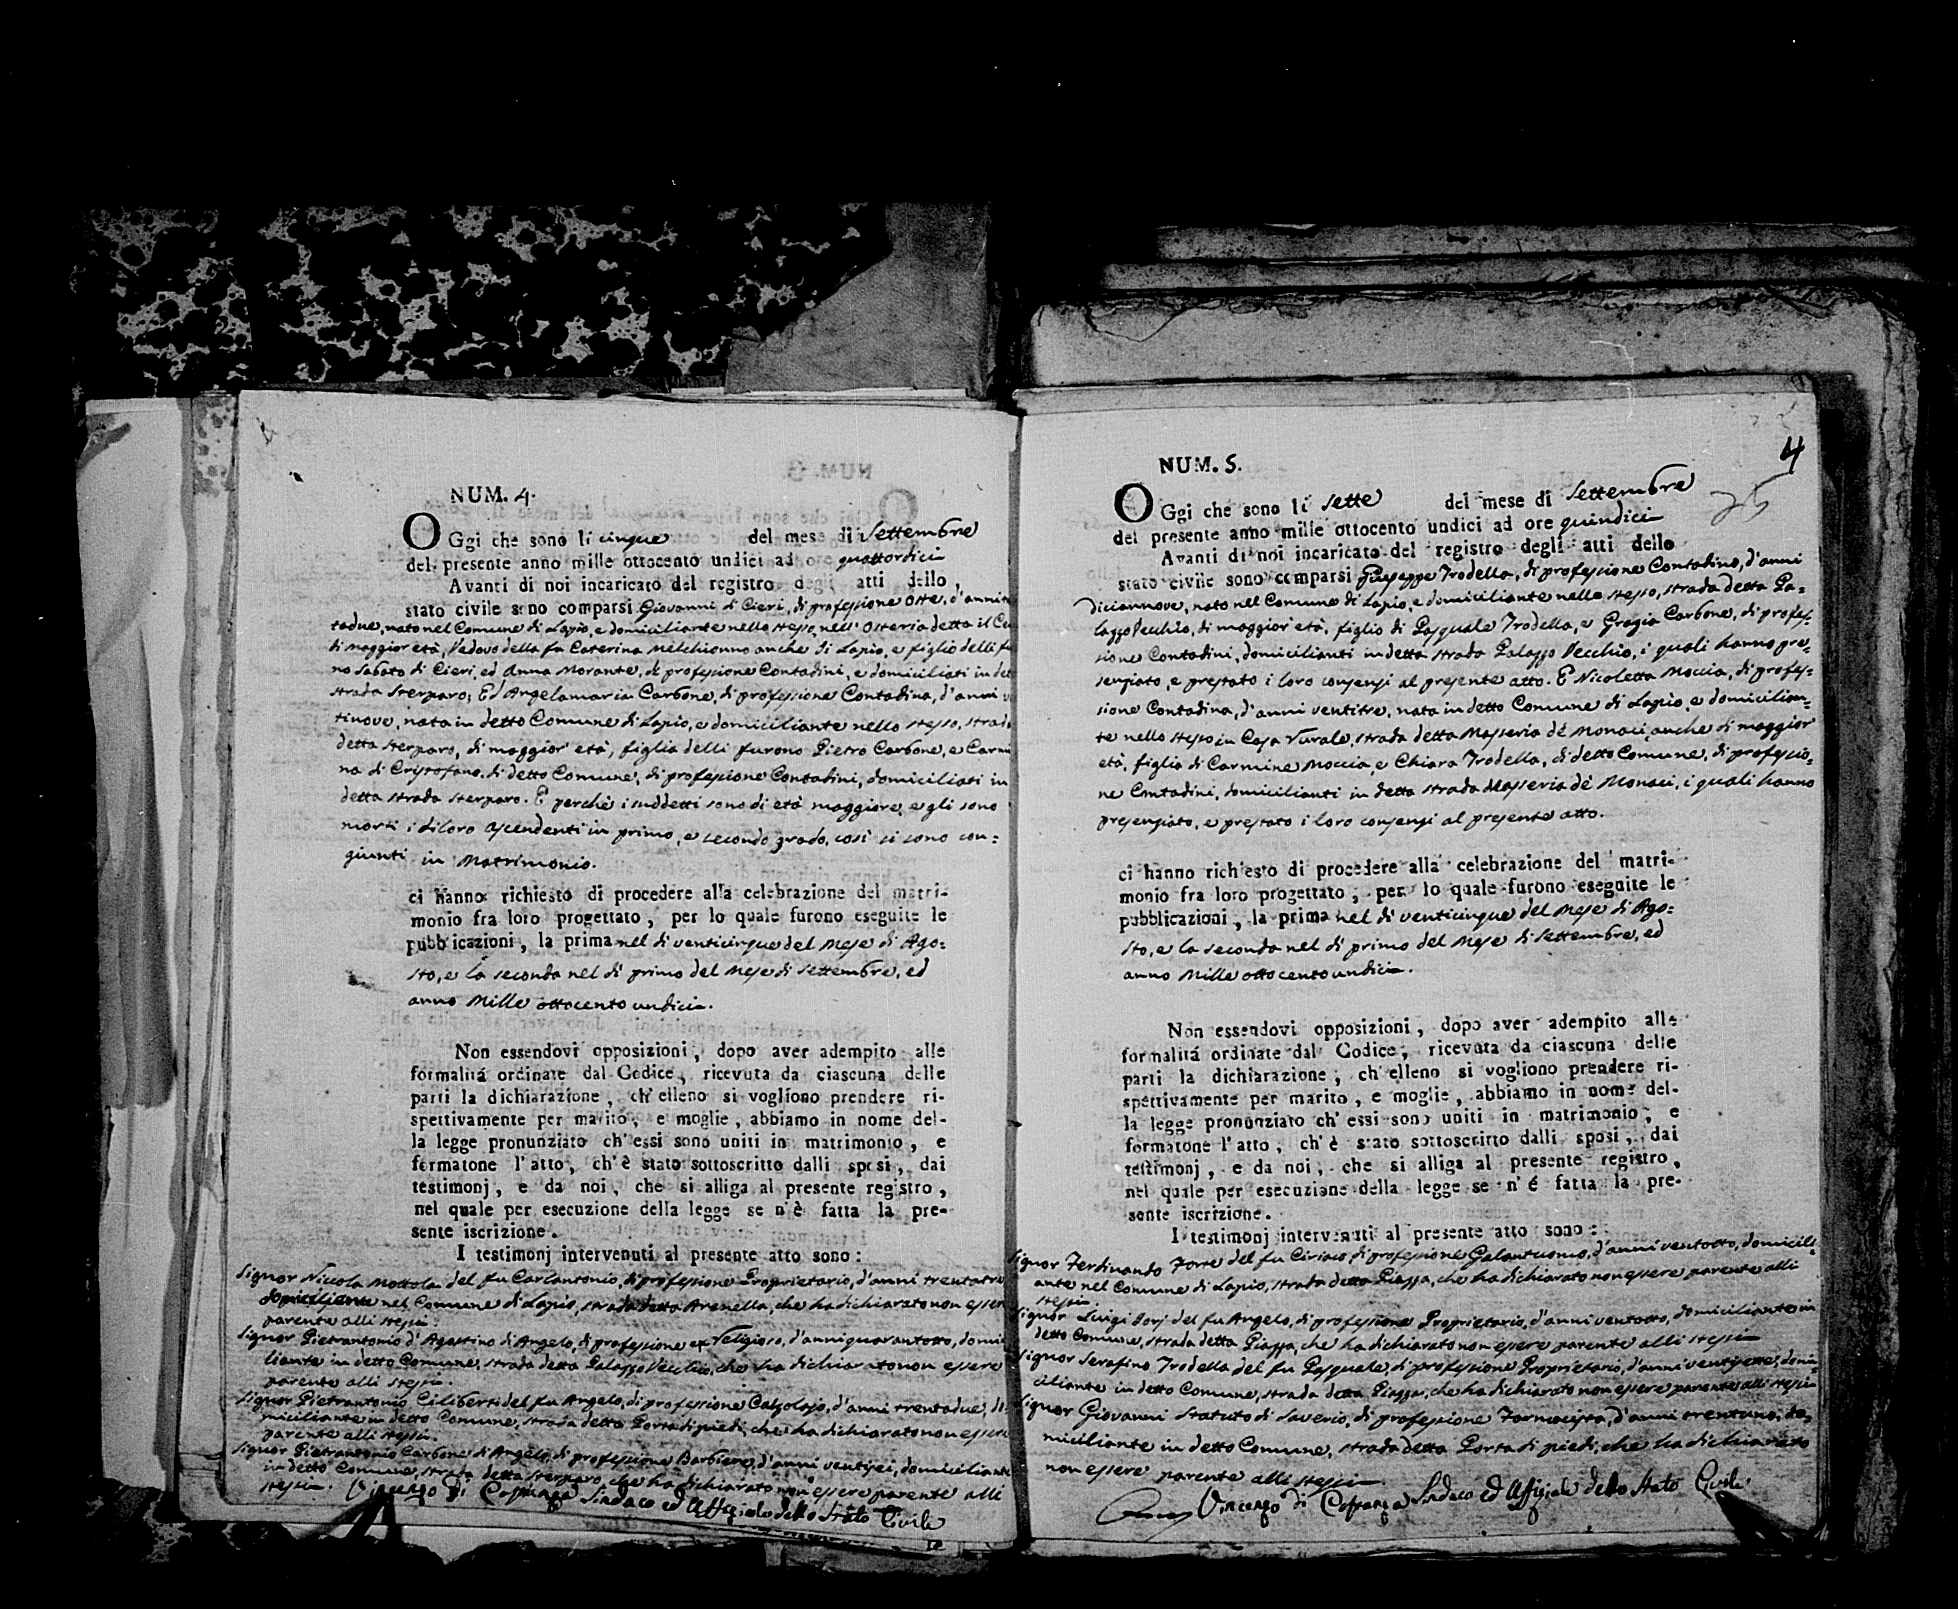 NUM. 4.
OGgi che sono li cinque del mese di Settembre
del presente anno mille ottocento undici ad ore quattordici
Avanti di noi incaricato del registro degli atti dello
stato civile sono comparsi Giovanni di Cieri, di professione Oste, d'anni
tadue, nato nel Comune di Lapio, e domiciliante nello stesso, nell'Osteria detta il
di maggior età, Vedovo della fu Caterina Melchionno anche di Lapio, e figlio delli
no Sabato di Cieri, ed Anna Morante, di professione Contadini, e domiciliati in
strada Sterparo; Ed Angelamaria Carbone, di professione Contadina, d'anni
tinove, nata in detto Comune di Lapio, e domiciliante nello stesso, strada
detta Sterparo, di maggior età, figlia delli furono Pietro Carbone, e
na di Cristofano, di detto Comune, di professione Contadini, domiciliati in
detta strada Sterparo. E perchè i suddetti sono di età maggiore, e gli sono
morti i di loro ascendenti in primo, e secondo grado, così si sono con=
giunti in Matrimonio.
ci hanno richiesto di procedere alla celebrazione del matri-
monio fra loro progettato, per lo quale furono eseguite le
pubblicazioni, la prima nel dì venticinque del Mese di Ago=
sto, e la seconda nel dì primo del Mese di Settembre, ed
anno Mille ottocento undici.
Non essendovi opposizioni, dopo aver adempito alle
formalitá ordinate dal Codice, ricevuta da ciascuna delle
parti la dichiarazione, ch'elleno si vogliono prendere ri-
spettivamente per marito, e moglie, abbiamo in nome del-
la legge pronunziato ch'essi sono uniti in matrimonio, e
formatone l'atto, ch'è stato sottoscritto dalli sposi, dai
testimonj, e da noi, che si alliga al presente registro,
nel quale per esecuzione della legge se n'è fatta la pre-
sente iscrizione.
I testimonj intervenuti al presente atto sono:
Signor Nicola Mottola del fu Carlantonio, di professione Proprietario, d'anni trentatre
domiciliante nel Comune di Lapio, strada detta Arenella, che ha dichiarato non essere
parente alli stessi.
Signor Pietrantonio d'Agostino di Angelo, di professione ex Religioso, d'anni quarantotto, domi
liante in detto Comune, strada detta Palazzo Vecchio, che ha dichiarato non essere
parente alli stessi.
Signor Pietrantonio Ciliberti del fu Angelo, di professione Calzolajo, d'anni trentadue, do
miciliante in detto Comune, strada detta Porta di piedi, che ha dichiarato non essere
parente alli stessi.
Signor Pietrantonio Carbone di Angelo, di professione Barbiere, d'anni ventisei, domiciliante
in detto Comune, strada detta Sterparo, che ha dichiarato non essere parente alli
stessi. Vincenzo di Cosmaga Sindaco ed Uffiziale dello Stato Civile
4
NUM. 5.
OGgi che sono li sette del mese di Settembre
del presente anno mille ottocento undici ad ore quindici
Avanti di noi incaricato del registro degli atti dello
stato civile sono comparsi Giuseppe Trodella, di professione Contadino, d'anni
diciannove, nato nel Comune di Lapio, e domiciliante nello stesso, strada detta Pa=
lazzo Vecchio, di maggior età, figlio di Pasquale Trodella, e Grazia Carbone, di profes=
sione Contadini, domicilianti in detta strada Palazzo Vecchio, i quali hanno pre=
senziato, e prestato i loro consensi al presente atto. E Nicoletta Moccia, di profes=
sione Contadina, d'anni ventitre, nata in detto Comune di Lapio, e domicilian=
te nello stesso in Casa Rurale, strada detta Masseria de' Monaci, anche di maggior
età, figlia di Carmine Moccia, e Chiara Trodella, di detto Comune, di professio=
ne Contadini, domicilianti in detta strada Masseria de' Monaci, i quali hanno
presenziato, e prestato i loro consensi al presente atto.
ci hanno richiesto di procedere alla celebrazione del matri-
monio fra loro progettato, per lo quale furono eseguite le
pubblicazioni, la prima nel dì venticinque del Mese di Ago=
sto, e la seconda nel dì primo del Mese di Settembre, ed
anno Mille ottocento undici.
Non essendovi opposizioni, dopo aver adempito alle
formalitá ordinate dal Codice, ricevuta da ciascuna delle
parti la dichiarazione, ch'elleno si vogliono prendere ri-
spettivamente per marito, e moglie, abbiamo in nome del-
la legge pronunziato ch'essi sono uniti in matrimonio, e
formatone l'atto, ch'è stato sottoscritto dalli sposi, dai
testimonj, e da noi, che si alliga al presente registro,
nel quale per esecuzione della legge se n'é fatta la pre-
sente iscrizione.
I testimonj intervenuti al presente atto sono:
Signor Ferdinando Forte del fu Ciriaco, di professione Galantuomo, d'anni ventotto, domicili=
ante nel Comune di Lapio, strada detta Piazza, che ha dichiarato non essere parente alli
stessi.
Signor Luigi del fu Angelo, di professione Proprietario, d'anni ventotto, domiciliante in
detto Comune, strada detta Piazza, che ha dichiarato non essere parente alli stessi
Signor Serafino Trodella del fu Pasquale, di professione Proprietario, d'anni ventisette, domi=
ciliante in detto Comune, strada detta Piazza, che ha dichiarato non essere parente alli stessi
Signor Giovanni Statuto di Saverio, di professione Farmacista, d'anni trentuno, do=
miciliante in detto Comune, strada detta Porta di piedi, che ha dichiarato
non essere parente alli stessi
Vincenzo di Sindaco ed Uffiziale dello Stato Civile